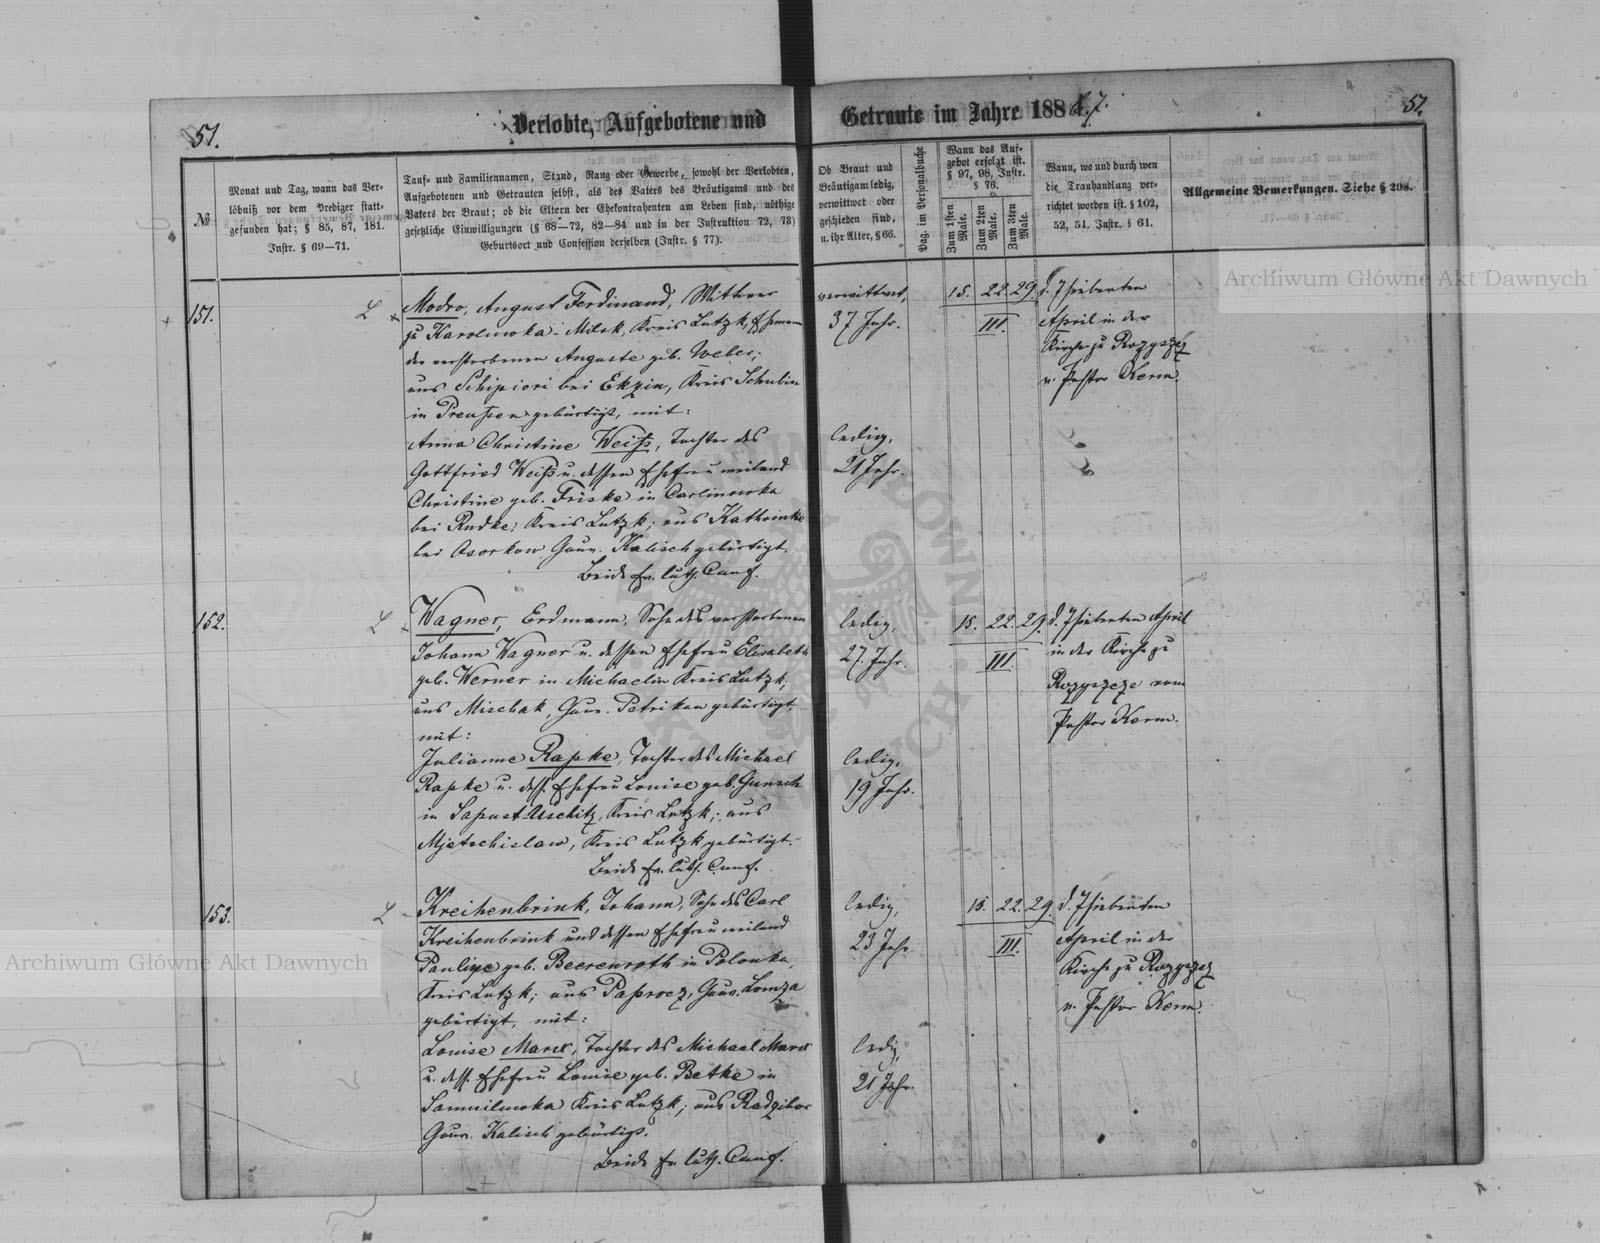 51.
Verlobte, Aufgebotene und
Getraute im Jahre 1887.
51.
№
Monat und Tag, wann das Ver-
löbniß vor dem Prediger statt-
gefunden hat; § 85, 87, 181.
Instr. § 69—71.
Tauf- und Familiennamen, Stand, Rang oder Gewerbe, sowohl der Verlobten,
Aufgebotenen und Getrauten selbst, als des Vaters des Bräutigams und des
Vaters der Braut; ob die Eltern der Ehekontrahenten am Leben sind, nöthige
gesetzliche Einwilligungen (§ 68—72, 82—84 und in der Instruktion 72, 73)
Geburtsort und Confession derselben (Instr. § 77).
Ob Braut und
Bräutigam ledig,
verwittwet oder
geschieden sind,
u. ihr Alter, § 66.
Pag. im Personalbuche
Wann das Auf-
gebot erfolgt ist.
§ 97, 98, Instr.
§ 76.
Zum 1sten Male.
Zum 2ten Male.
Zum 3ten Male.
Wann, wo und durch wen
die Trauhandlung ver-
richtet worden ist. § 102,
52, 51. Instr. § 61.
Allgemeine Bemerkungen. Siehe § 208.
151.
L
Modro, August Ferdinand, Wittwer
zu Karolinwka-Milek, Kreis Lutzk, Ehemann
der verstorbenen Auguste geb. Weber;
aus Schipiori bei Exin, Kreis Schubin
in Preußen gebürtigt, mit:
Anna Christine Weiß, Tochter des
Gottfried Weiß u. dessen Ehefrau weiland
Christine geb. Friske in Carlinuwka
bei Rudke, Kreis Lutzk; aus Kathrinke
bei Osorkow, Gouv. Kalisch gebürtigt.
Beide Ev. luth. Conf.
verwittwet,
37 Jahr.
ledig,
21 Jahr.
15. 22. 29.
III.
d. 7 siebenten
April in der
Kirche zu Rozyszcz
v. Pastor Kerm.
152.
L
Wagner, Erdmann, Sohn des verstorbenen
Johann Wagner u. dessen Ehefrau Elisabeth
geb. Werner in Michaelin Kreis Lutzk,
aus Mischak, Gouv. Petrikau gebürtigt,
mit:
Julianne Rapke, Tochter des Michael
Rapke u. dess. Ehefrau Louise geb. Gunsch
in Sapust Uschitz, Kreis Lutzk; aus
Mjetschislaw, Kreis Lutzk gebürtigt.
Beide Ev. luth. Conf.
ledig,
27. Jahr.
ledig,
19 Jahr.
15. 22. 29.
III.
d. 7 siebenten April
in der Kirche zu
Rozyszcze vom
Pastor Kerm.
153.
L
Kreihenbrink, Johann, Sohn des Carl
Kreihenbrink und dessen Ehefrau weiland
Pauline geb. Beerenroth in Polonka,
Kreis Lutzk; aus Paprocz, Gouv. Lomza
gebürtigt, mit:
Louise Marx, Tochter des Michael Marx
u. dess. Ehefrau Louise geb. Betke in
Samuiluwka Kreis Lutzk; aus Radzibor
Gouv. Kalisch gebürtigt.
Beide Ev. luth. Conf.
ledig,
23 Jahr.
ledig,
21 Jahr.
15. 22. 29.
III.
d. 7 siebenten
April in der
Kirche zu Rozyszcz
v. Pastor Kerm.
Archiwum Główne Akt Dawnych
Archiwum Główne Akt Dawnych